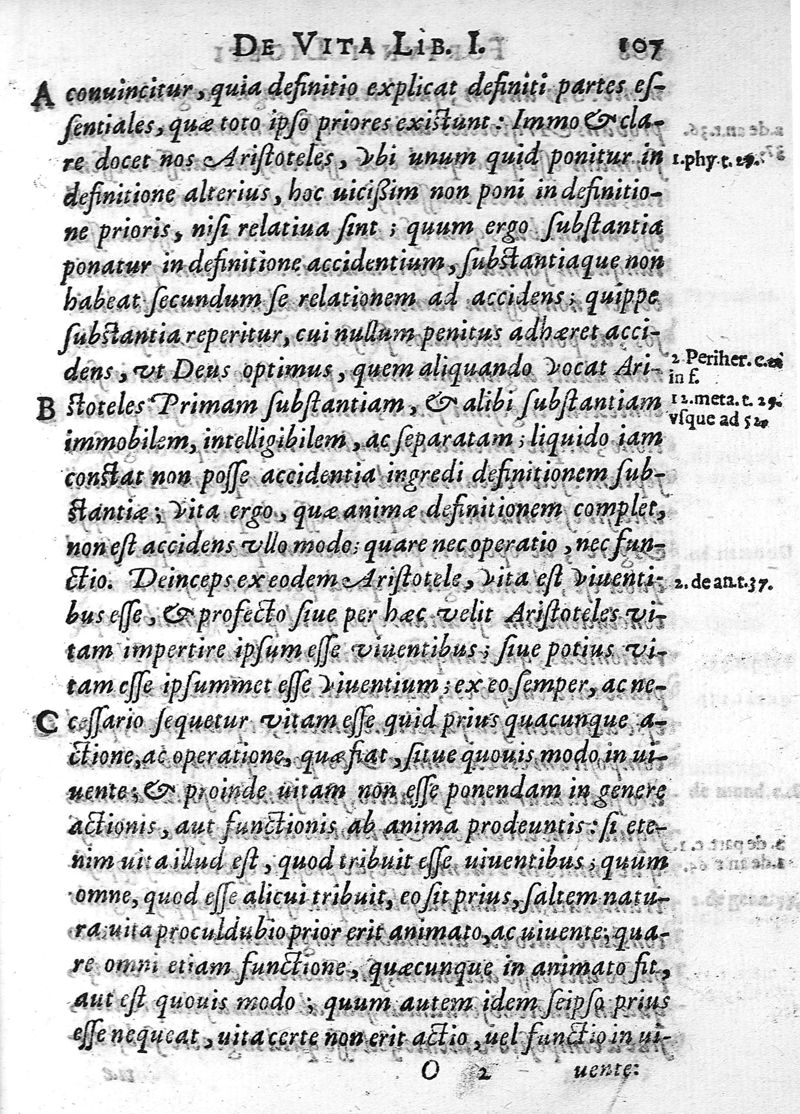 DE VITA LIB. I. 107
A conuincitur, quia definitio explicat definiti partes eſ-
ſentiales, quæ toto ipſo priores exiſtunt: Immo & cla-
re docet nos Ariſtoteles, vbi unum quid ponitur in 1. phy. t. 29.
definitione alterius, hoc uiciſſim non poni in definitio-
ne prioris, niſi relatiua ſint; quum ergo ſubſtantia
ponatur in definitione accidentium, ſubſtantiaque non
habeat ſecundum ſe relationem ad accidens; quippe
ſubſtantia reperitur, cui nullum penitus adhæret acci-
dens, vt Deus optimus, quem aliquando vocat Ari- 2. Periher. c.
in f.
B ſtoteles Primam ſubſtantiam, & alibi ſubſtantiam 12. meta. t. 29.
immobilem, intelligibilem, ac ſeparatam; liquido iam vſque ad 52.
conſtat non poſſe accidentia ingredi definitionem ſub-
ſtantiæ; vita ergo, quæ animæ definitionem complet,
non eſt accidens vllo modo: quare nec operatio, nec fun-
ctio. Deinceps ex eodem Ariſtotele, vita eſt viuenti- 2. de an. t. 37.
bus eſſe, & profecto ſiue per hæc velit Ariſtoteles vi-
tam impertire ipſum eſſe viuentibus; ſiue potius vi-
tam eſſe ipſummet eſſe viuentium; ex eo ſemper, ac ne-
C ceſſario ſequetur vitam eſſe quid prius quacunque a-
ctione, ac operatione, quæ fiat, ſitue quouis modo in ui-
uente; & proinde uitam non eſſe ponendam in genere
actionis, aut functionis ab anima prodeuntis: ſi ete-
nim uita illud eſt, quod tribuit eſſe uiuentibus; quum
omne, quod eſſe alicui tribuit, eo ſit prius, ſaltem natu-
ra uita proculdubio prior erit animato, ac uiuente; qua-
re omni etiam functione, quæcunque in animato fit,
aut eſt quouis modo; quum autem idem ſeipſo prius
eſſe nequeat, uita certe non erit actio, uel functio in ui-
O 2 uente: